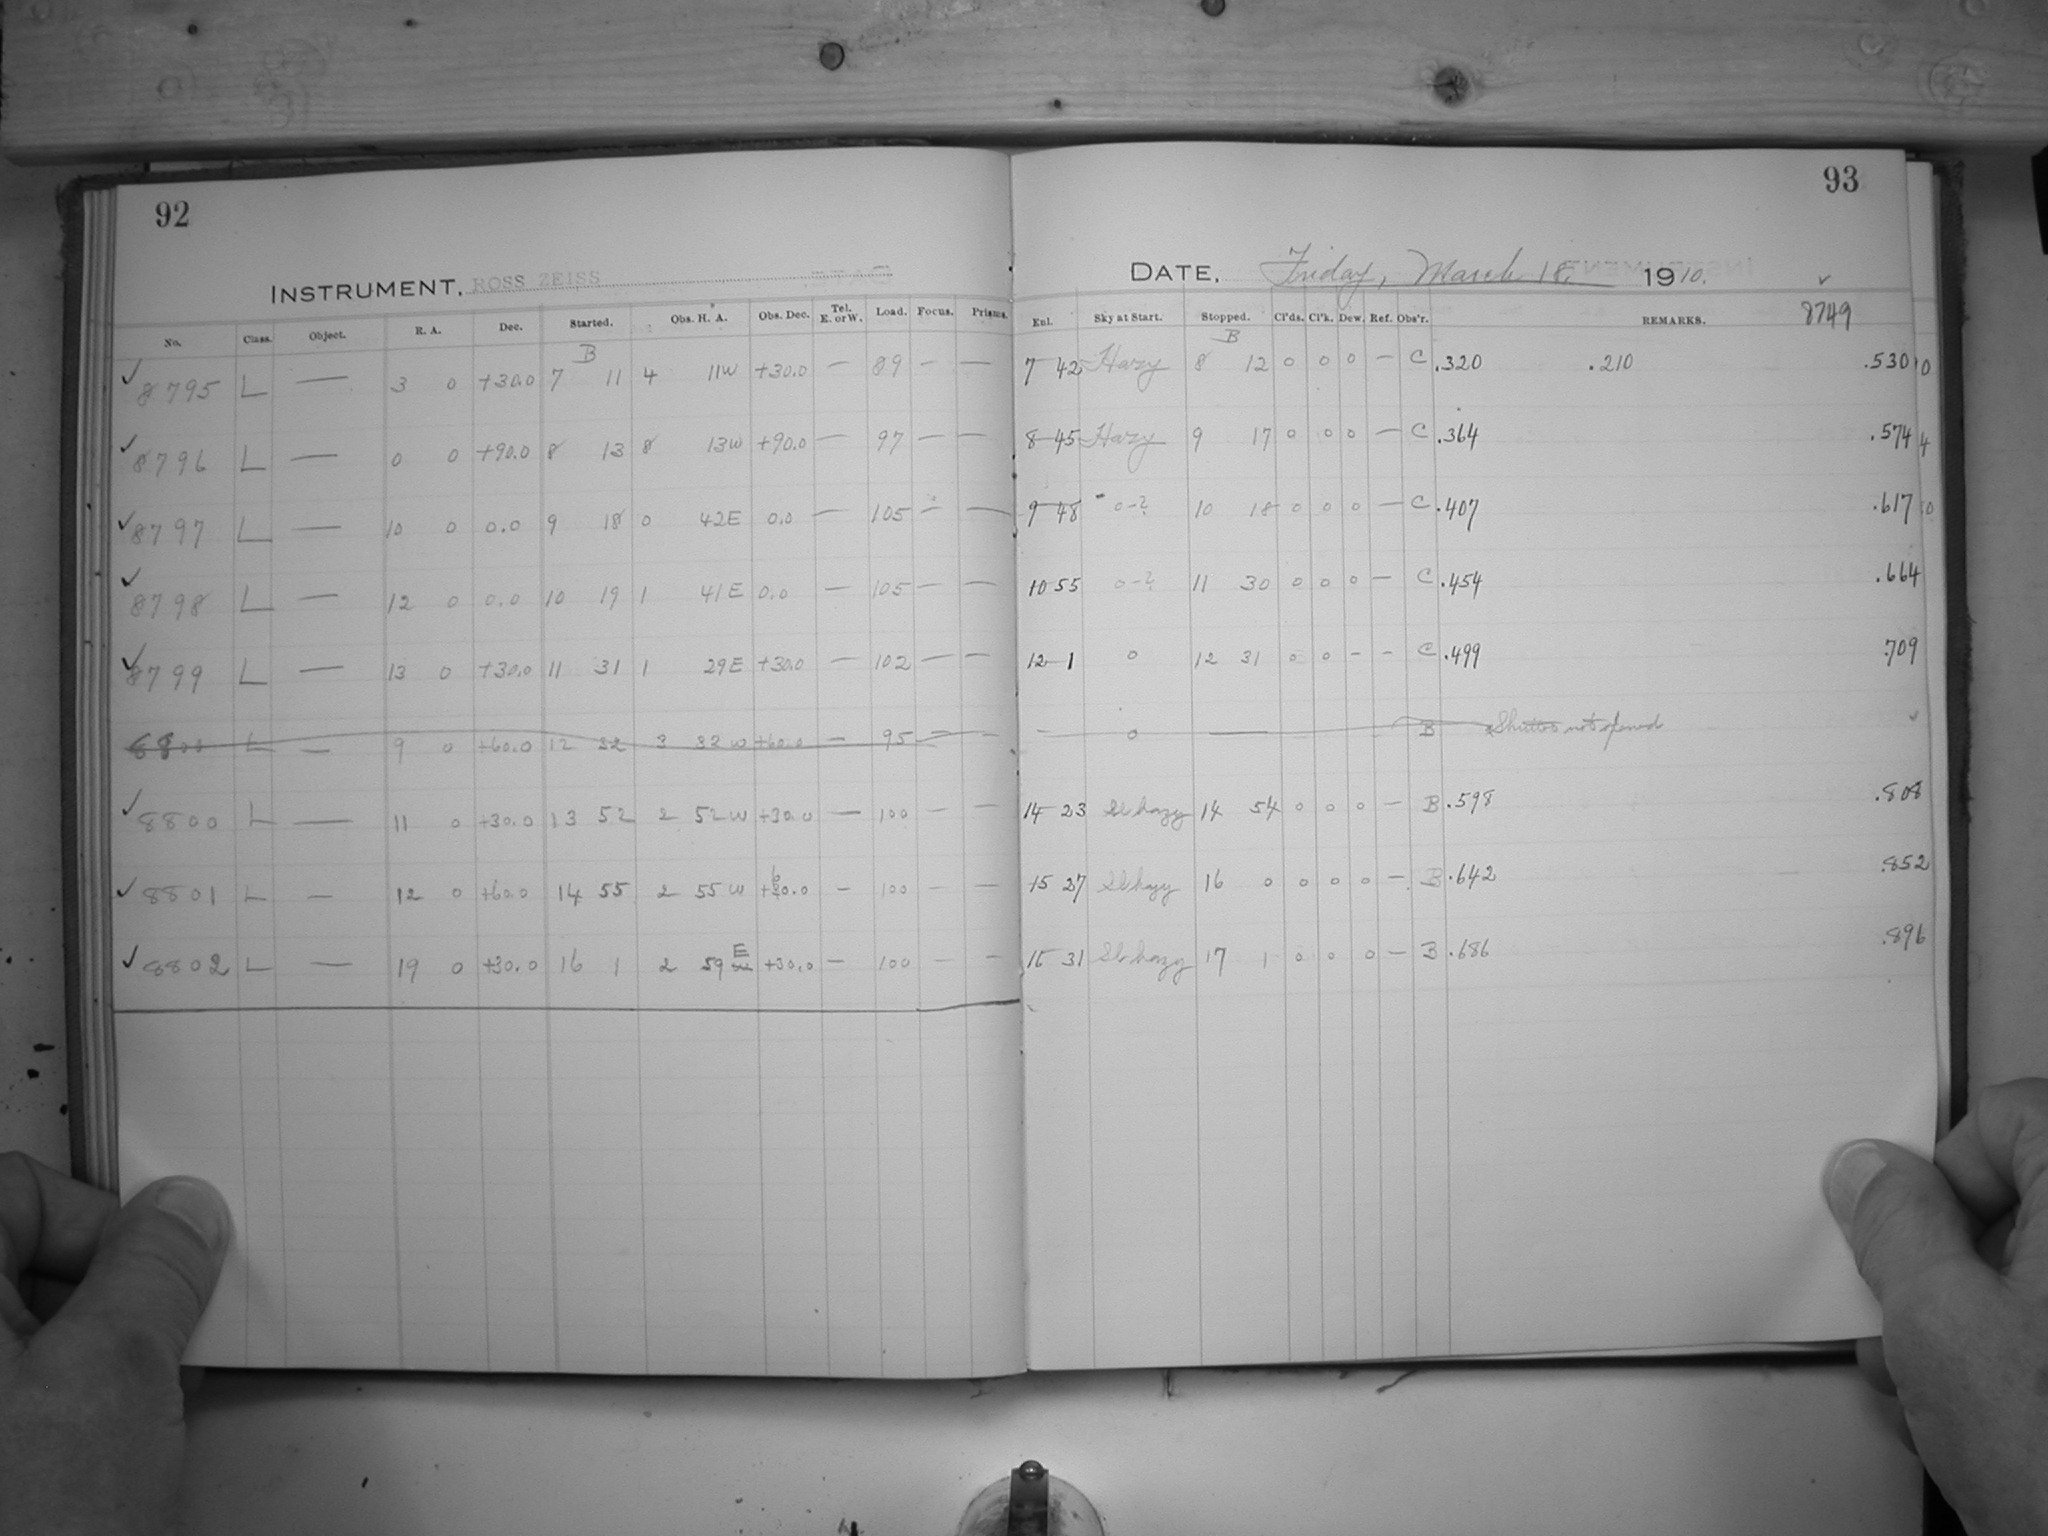 92
INSTRUMENT. ROSS ZEISS
No. Class. Object. R. A. Dec. Started. Obs. H. A. Obs. Dec. Tel. E. or W. Load. Focus. Prisms.
B
✓ 8795 L — 3 0 +30.0 7 11 4 11W +30.0 — 89 — —
✓ 8796 L — 0 0 +90.0 8 13 8 13W +90.0 — 97 — —
✓ 8797 L — 10 0 0.0 9 18 0 42E 0.0 — 105 — —
✓ 8798 L — 12 0 0.0 10 19 1 41E 0.0 — 105 — —
✓ 8799 L — 13 0 +30.0 11 31 1 29E +30.0 — 102 — —
8800 L — 9 0 +60.0 12 32 3 32W +60.0 — 95 — —
✓ 8800 L — 11 0 +30.0 13 52 2 52W +30.0 — 100 — —
✓ 8801 L — 12 0 +60.0 14 55 2 55W +60.0 — 100 — —
✓ 8802 L — 19 0 +30.0 16 1 2 59 E +30.0 — 100 — —
93
DATE, Friday, March 18, 1910.
✓
Exl. Sky at Start. Stopped. Cl'ds. Cl'k. Dew. Ref. Obs'r. REMARKS. 8749
B
7 42 Hazy 8 12 0 0 0 — C .320 .210 .530
8 45 Hazy 9 17 0 0 0 — C .364 .574
9 48 0-? 10 18 0 0 0 — C .407 .617
10 55 0-? 11 30 0 0 0 — C .454 .664
12 1 0 12 31 0 0 - - C .499 .709
— 0 — B Shutter not opened
14 23 Sl hazy 14 54 0 0 0 — B .598 .808
15 27 Sl hazy 16 0 0 0 0 — B .642 .852
16 31 Sl hazy 17 1 0 0 0 — B .686 .896